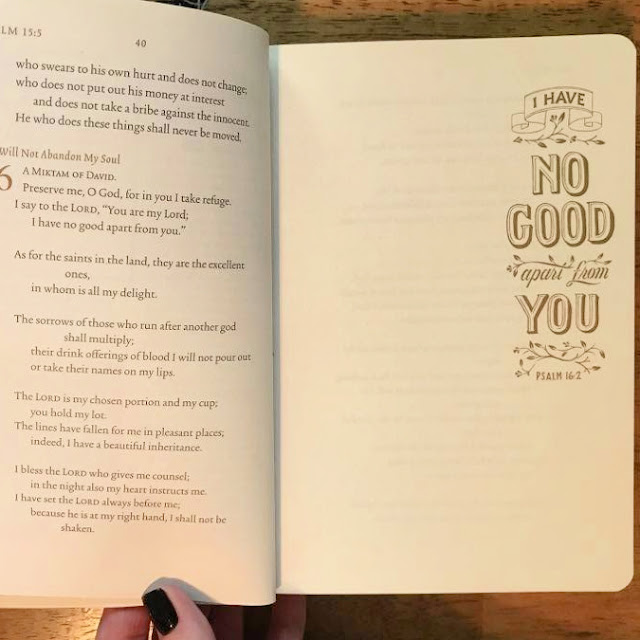 LM 15:5
40
who swears to his own hurt and does not change;
who does not put out his money at interest
and does not take a bribe against the innocent.
He who does these things shall never be moved.
Will Not Abandon My Soul
6 A MIKTAM OF DAVID.
Preserve me, O God, for in you I take refuge.
I say to the LORD, “You are my Lord;
I have no good apart from you.”
As for the saints in the land, they are the excellent
ones,
in whom is all my delight.
The sorrows of those who run after another god
shall multiply;
their drink offerings of blood I will not pour out
or take their names on my lips.
The LORD is my chosen portion and my cup;
you hold my lot.
The lines have fallen for me in pleasant places;
indeed, I have a beautiful inheritance.
I bless the LORD who gives me counsel;
in the night also my heart instructs me.
I have set the LORD always before me;
because he is at my right hand, I shall not be
shaken.
I HAVE
NO
GOOD
apart from
YOU
PSALM 16:2